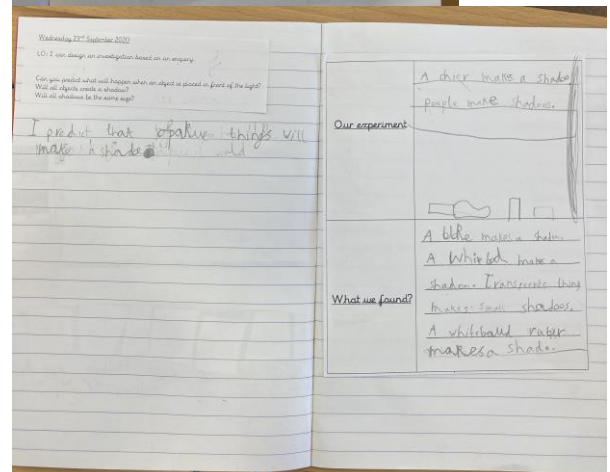 Wednesday 23rd September 2020
LO: I can design an investigation based on an enquiry.
Can you predict what will happen when an object is placed in front of the light?
Will all objects create a shadow?
Will all shadows be the same size?
I predict that opakue things will
make a shado
Our experiment
A chier make a shadoo
people make shadoos.
What we found?
A makes a shadoo.
A make a
shadoo. Transperete thing
makes small shadoos.
A whitebaud ruber
makes a shado.